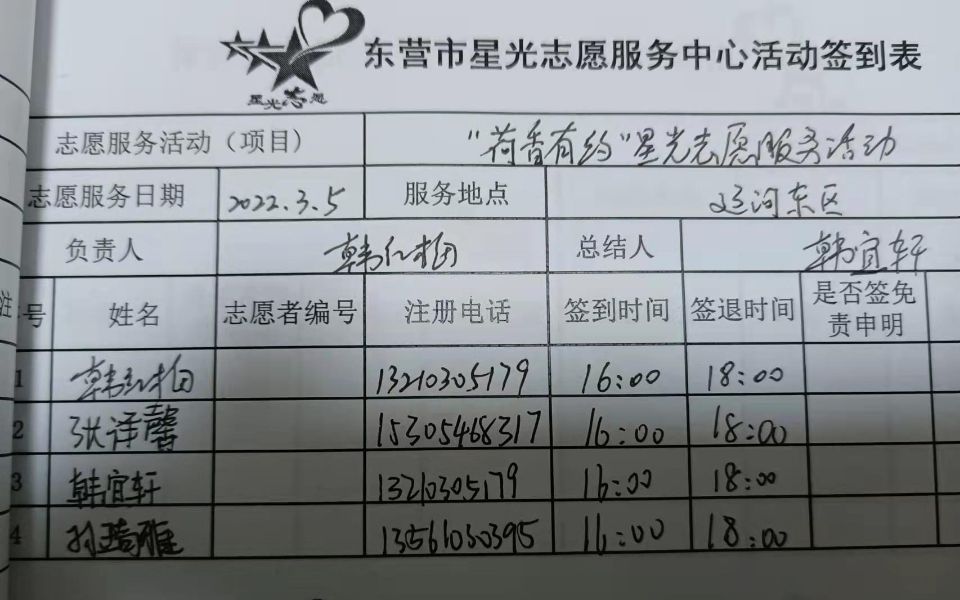 星光志愿
东营市星光志愿服务中心活动签到表
志愿服务活动（项目） “荷香有约”星光志愿服务活动
志愿服务日期 2022.3.5 服务地点 运河东区
负责人 韩红梅 总结人 韩宜轩
注
号 姓名 志愿者编号 注册电话 签到时间 签退时间 是否签免
责申明
1 韩红梅 13210305179 16:00 18:00
2 张译馨 15305468317 16:00 18:00
3 韩宜轩 13210305179 16:00 18:00
4 13561030395 16:00 18:00